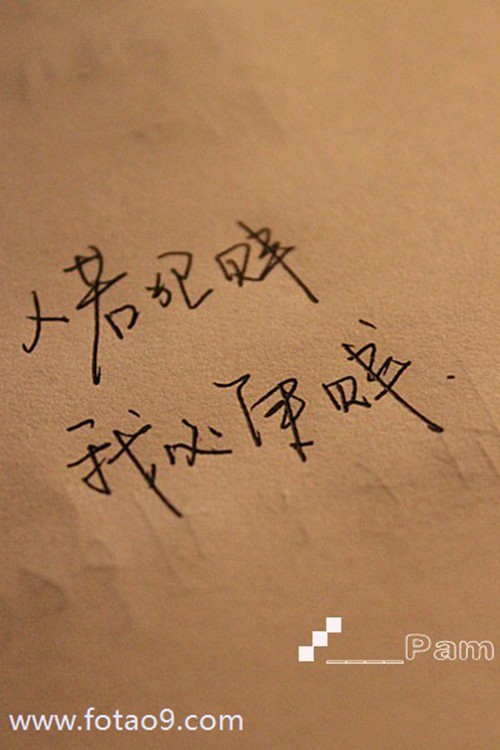 人若犯贱
我必贱.
____Pam
www.fotao9.com